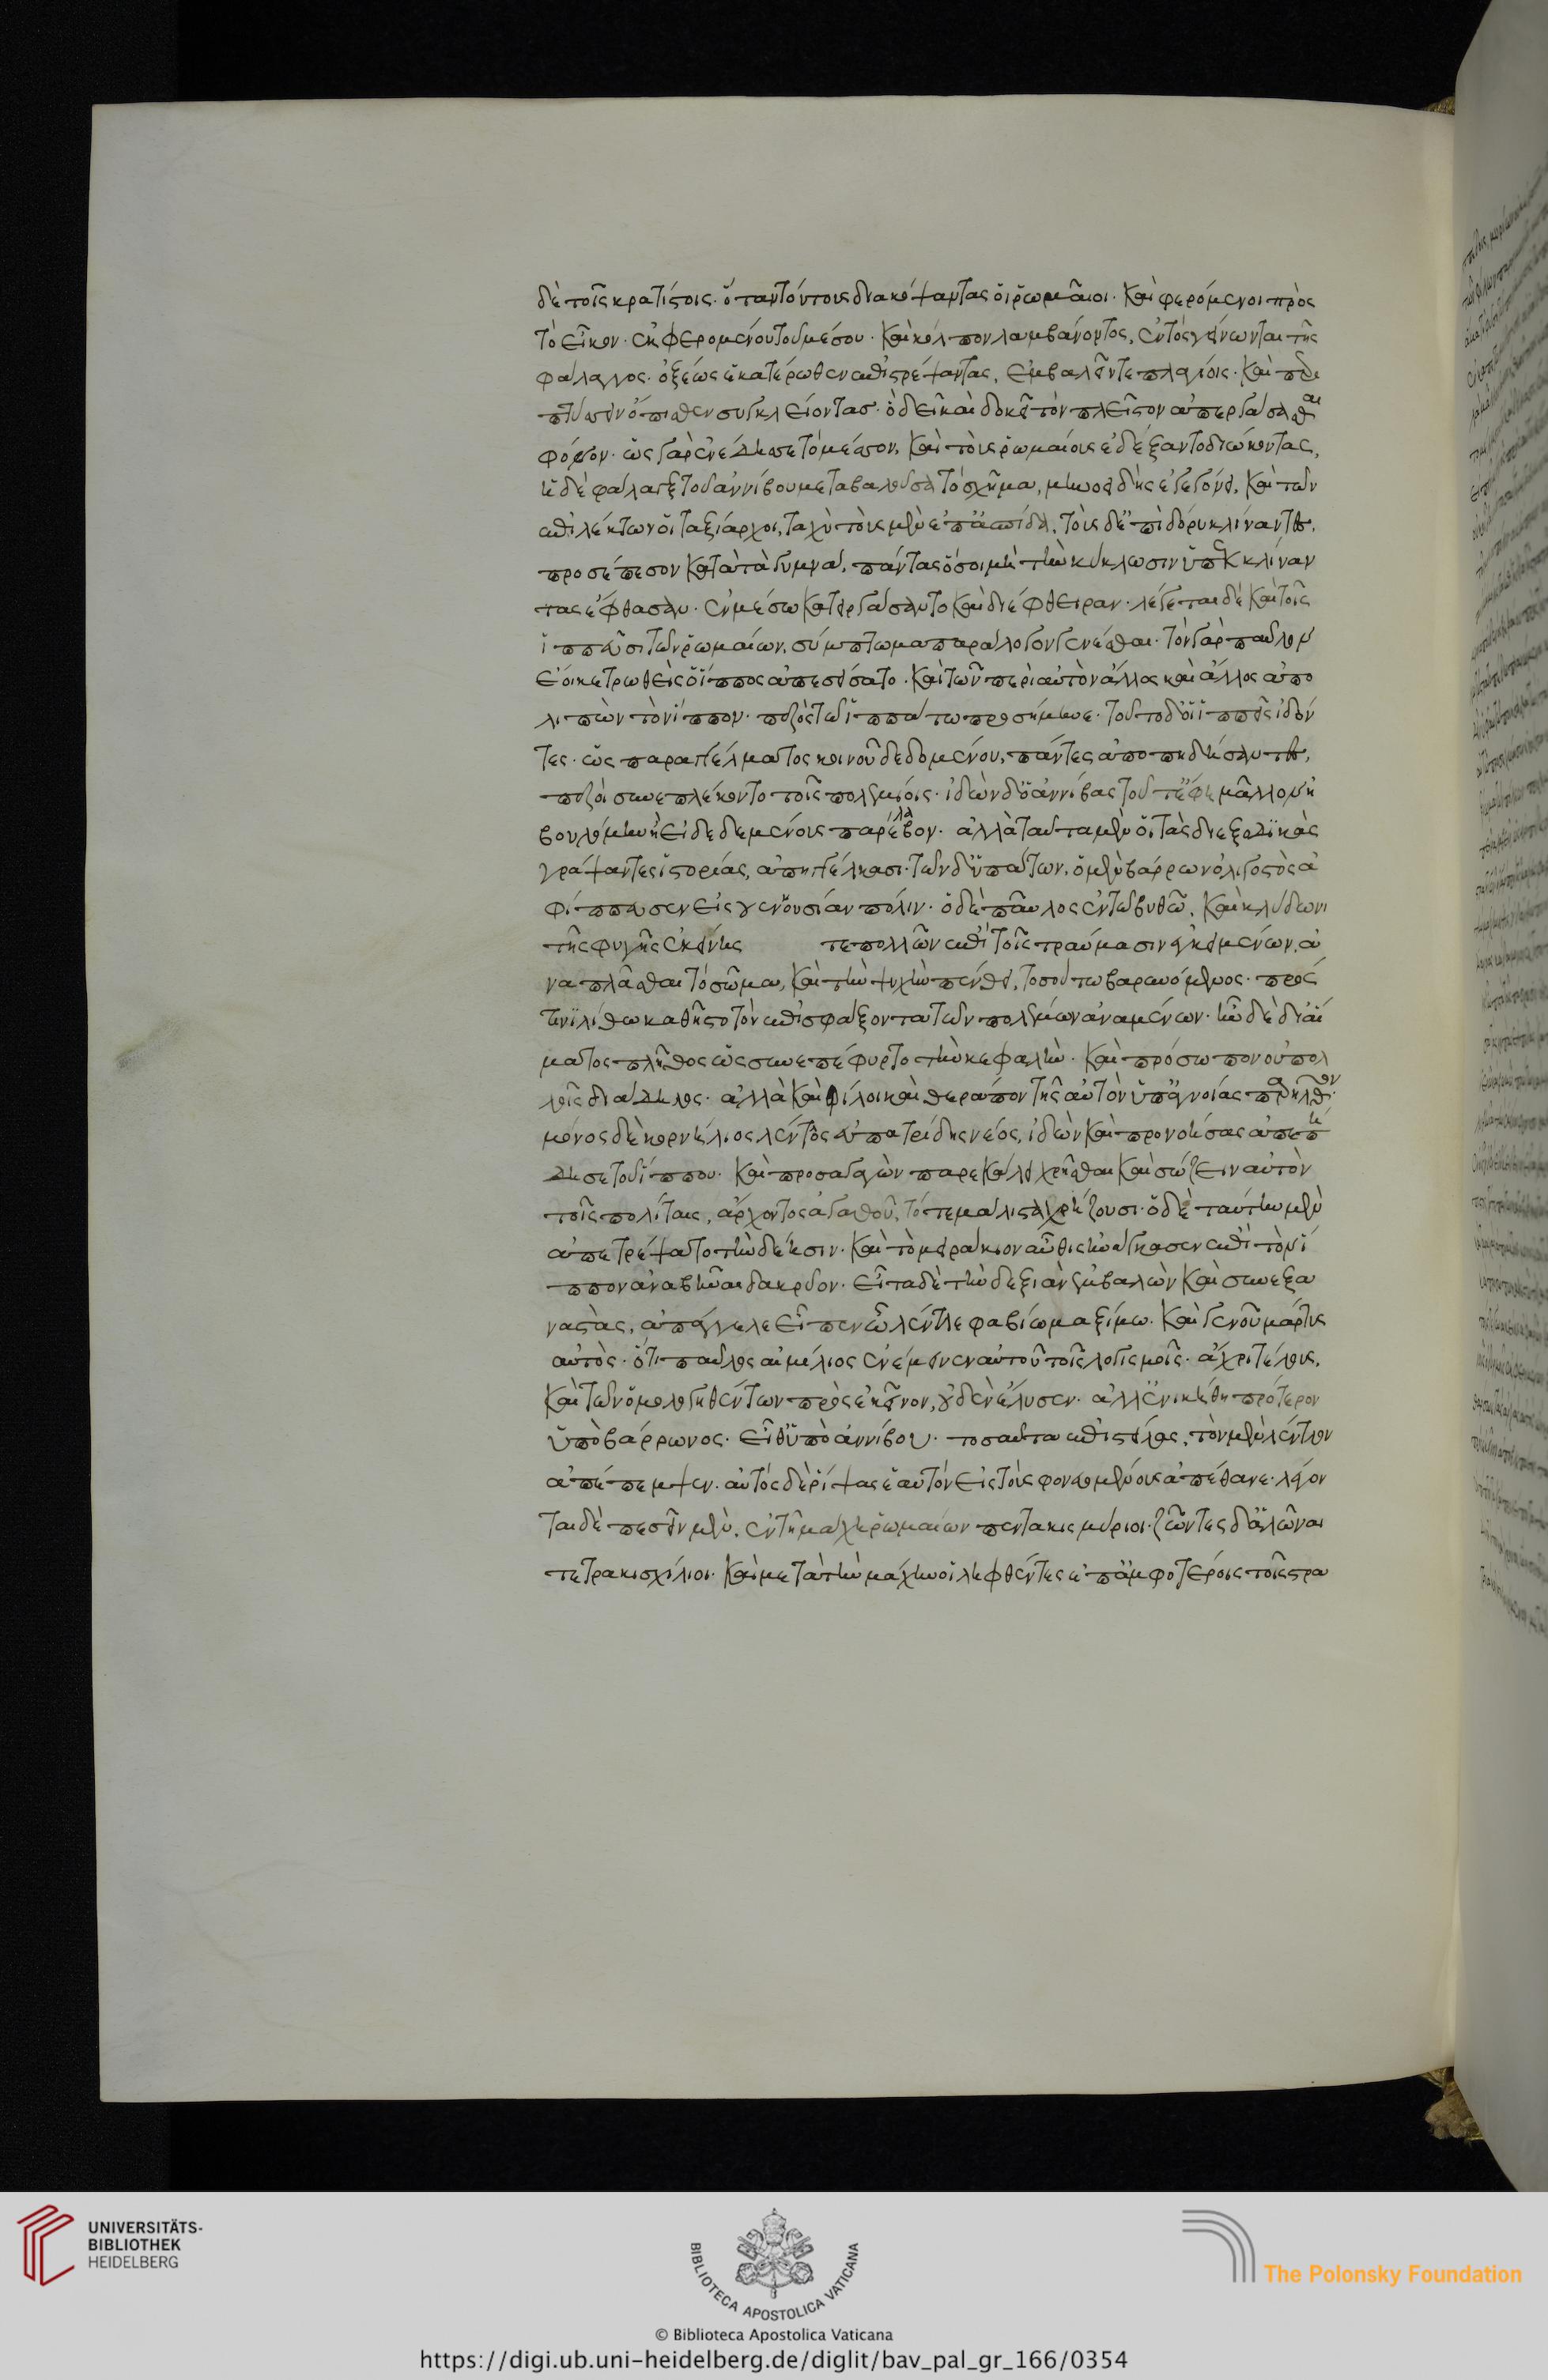 δὲ τοῖς κρατίστοις· ὅταν τούτους διακόψαντας οἱ ῥωμαῖοι· καὶ φερόμενοι πρὸς
τὸ εἶκον· ἐκφερομένου τοῦ μέσου· καὶ κόλπον λαμβάνοντος, ἐντὸς γένωνται τῆς
φάλαγγος· ὀξέως ἑκατέρωθεν ἐπιστρέψαντας, ἐμβαλεῖν τε πλαγίοις· καὶ περι
πτύσσειν ὄπισθεν συγκλείοντας· ὃ δεῖ καὶ δοκεῖ τὸν πλεῖστον ἀπεργάσασθαι
φόνον· ὡς γὰρ ἐνέδωκε τὸ μέσον, καὶ τοὺς ῥωμαίους ἐδέξαντο διώκοντας,
ἡ δὲ φάλαγξ τοῦ ἀννίβου μεταβαλοῦσα τὸ σχῆμα, μηνοειδὴς ἐγεγόνει, καὶ τῶν
ἐπιλέκτων οἱ ταξίαρχοι, ταχὺ τοὺς μὲν ἐπ' ἀσπίδα, τοὺς δ' ἐπὶ δόρυ κλίναντες,
προσέπεσον κατὰ τὰ γυμνά, πάντας ὅσοι μὴ τὴν κύκλωσιν ὑπεκκλίναν
τας ἔφθασαν· ἐν μέσω κατειργάσαντο καὶ διέφθειραν· λέγεται δὲ καὶ τοῖς
ἱππεῦσι τῶν ῥωμαίων, σύμπτωμα παράλογον γενέσθαι· τὸν γὰρ παῦλον
ἔοικε τρωθεὶς ὁ ἵππος ἀποσείσασθαι· καὶ τῶν περὶ αὐτὸν ἄλλος καὶ ἄλλος ἀπο
λιπὼν τὸν ἵππον· πεζὸς τῶ ὑπάτω προσήμυνε· τοῦτο δ' οἱ ἱππεῖς ἰδόν
τες· ὡς παραγγέλματος κοινοῦ δεδομένου, πάντες ἀποπηδήσαντες,
πεζοὶ συνεπλέκοντο τοῖς πολεμίοις· ἰδὼν δ' ὁ ἀννίβας τοῦτ' ἔφη μᾶλλον ἢ
βουλοίμην ἢ εἰ δεδεμένους παρέλαβον· ἀλλὰ ταῦτα μὲν οἱ τὰς διεξοδικὰς
γράψαντες ἱστορίας, ἀπηγγέλκασι· τῶν δ' ὑπάτων, ὁ μὲν βάρρων ὀλιγοστὸς ἀ
φίππευσεν εἰς γενουσίαν πόλιν· ὁ δὲ παῦλος ἐν τῶ βυθῶ, καὶ κλύδωνι
τῆς φυγῆς ἐκείνης τε πολλῶν ἐπὶ τοῖς τραύμασιν ἐγκειμένων, ἀ
ναπλᾶσθαι τὸ σῶμα, καὶ τὴν ψυχὴν πένθει, τοσούτω βαρυνόμενος· πρός
τινι λίθω καθῆστο τὸν ἐπισφάξοντα τῶν πολεμίων ἀναμένων· ἦν δὲ δι' αἵ
ματος πλῆθος ὡς συνεπέφυρτο τὴν κεφαλὴν· καὶ πρόσωπον οὐ πολ
λοῖς διάδηλος· ἀλλὰ καὶ φίλοι καὶ θεράποντες αὐτὸν ὑπ' ἀγνοίας παρῆλθον·
μόνος δὲ κορνήλιος λέντλος εὐπατρίδης νέος, ἰδὼν καὶ προνοήσας ἀπεπή
δησε τοῦ ἵππου· καὶ προσαγαγὼν παρεκάλει χρῆσθαι καὶ σώζειν αὐτὸν
τοῖς πολίταις, ἄρχοντος ἀγαθοῦ, τότε μάλιστα χρήζουσι· ὁ δὲ ταύτην μὲν
ἀπετρέψατο τὴν δέησιν· καὶ τὸ μειράκιον αὖθις ἠνάγκασεν ἐπὶ τὸν ἵ
ππον ἀναβῆναι δακρῦον· εἶτα δὲ τὴν δεξιὰν ἐμβαλὼν καὶ συνεξα
ναστὰς, ἀπάγγελε εἶπεν ὦ λέντλε φαβίω μαξίμω· καὶ γενοῦ μάρτυς
αὐτὸς· ὅτι παῦλος αἰμίλιος ἐνέμεινεν αὐτοῦ τοῖς λογισμοῖς· ἄχρι τέλους,
καὶ τῶν ὁμολογηθέντων πρὸς ἐκεῖνον, οὐδὲν ἔλυσεν· ἀλλ' ἐνικήθη πρότερον
ὑπὸ βάρρωνος· εἶθ' ὑπὸ ἀννίβου· τοσαῦτα ἐπιστείλας, τὸν μὲν λέντλον
ἀπέπεμψεν· αὐτὸς δὲ ῥίψας ἑαυτὸν εἰς τοὺς φονευομένους ἀπέθανε· λέγον
ται δὲ πεσεῖν μὲν, ἐν τῆ μάχη ῥωμαίων πεντακισμύριοι· ζῶντες δ' ἁλῶναι
τετρακισχίλιοι· καὶ μετὰ τὴν μάχην οἱ ληφθέντες ἐπ' ἀμφοτέροις τοῖς στρα
UNIVERSITÄTS-
BIBLIOTHEK
HEIDELBERG
BIBLIOTECA APOSTOLICA VATICANA
The Polonsky Foundation
© Biblioteca Apostolica Vaticana
https://digi.ub.uni-heidelberg.de/diglit/bav_pal_gr_166/0354